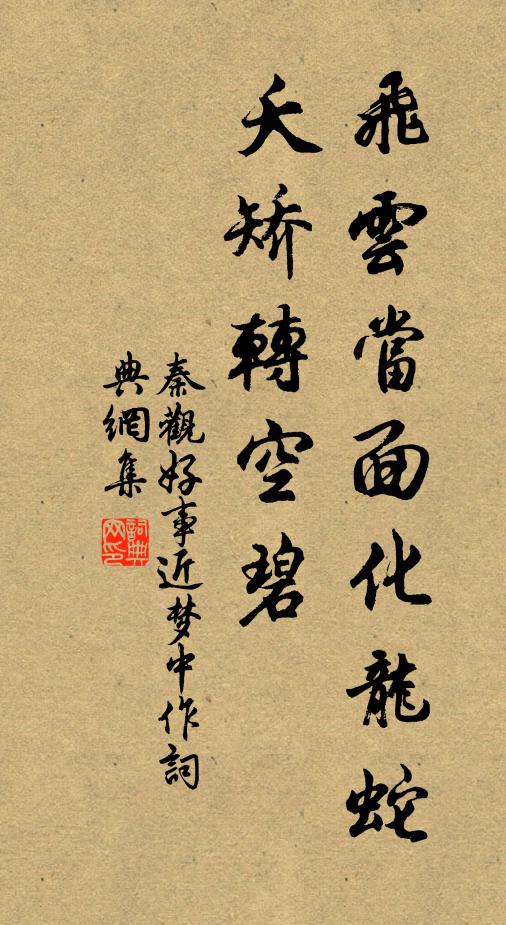 飛雲當面化龍蛇
夭矯轉空碧
秦觀好事近梦中作詞
典網集
詞典網印